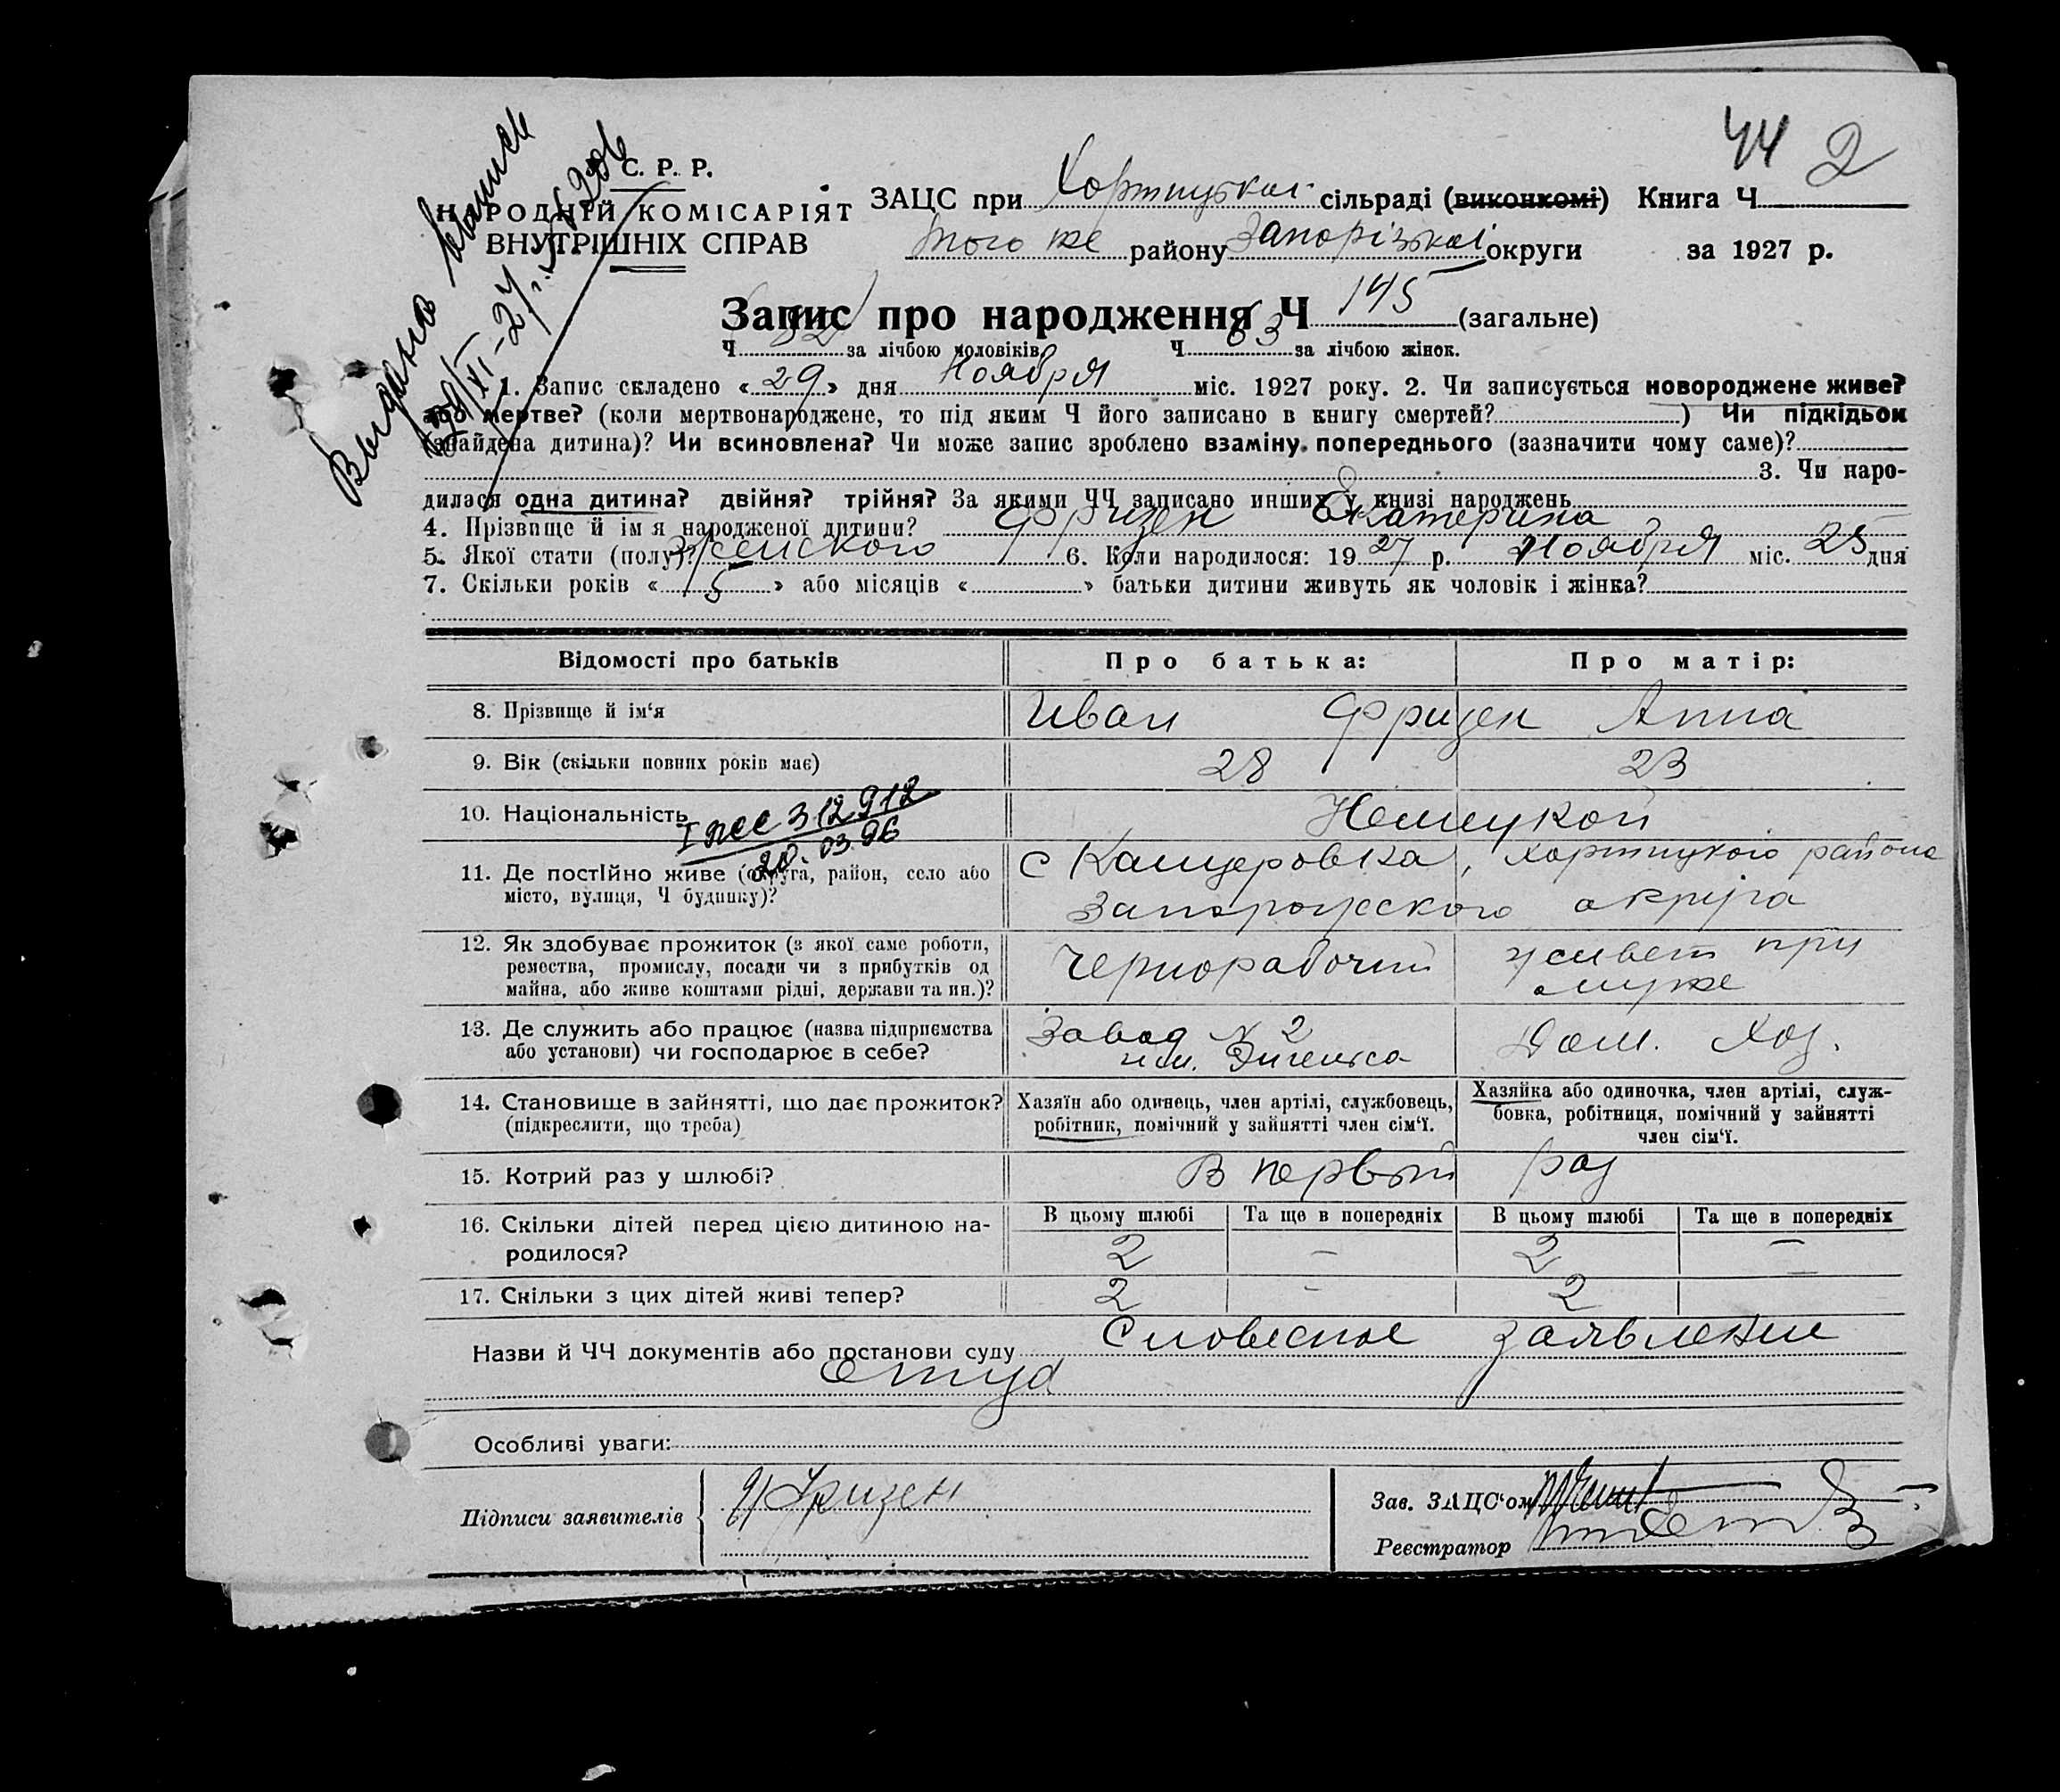 44 2
С. Р. Р.
НАРОДНІЙ КОМІСАРІЯТ
ВНУТРІШНІХ СПРАВ
Выдана выпись
29/XI-27 г.
ЗАЦС при Хортицької сільраді (виконкомі) Книга Ч
того же району Запорізької округи за 1927 р.
Запис про народження Ч 145 (загальне)
Ч 82 за лічбою чоловіків Ч 63 за лічбою жінок.
1. Запис складено « 29 » дня Ноября міс. 1927 року. 2. Чи записується новороджене живе?
або мертве? (коли мертвонароджене, то під яким Ч його записано в книгу смертей? ) Чи підкідьок
(знайдена дитина)? Чи всиновлена? Чи може запис зроблено взаміну попереднього (зазначити чому саме)?
3. Чи наро-
дилася одна дитина? двійня? трійня? За якими ЧЧ записано инших у книзі народжень
4. Прізвище й ім'я народженої дитини? Фризен Екатерина
5. Якої стати (полу)? Женского 6. Коли народилося: 19 27 р. Ноября міс. 25 дня
7. Скільки років « 5 » або місяців « » батьки дитини живуть як чоловік і жінка?
Відомості про батьків Про батька: Про матір:
8. Прізвище й ім'я Иван Фризен Анна
9. Вік (скільки повних років має) 28 23
10. Національність Немецкой
312912
20.03.96
11. Де постійно живе (округа, район, село або с Канцеровка, Хортицкого района
місто, вулиця, Ч будинку)? Запорожского округа
12. Як здобуває прожиток (з якої саме роботи,
ремества, промислу, посади чи з прибутків од Чернорабочий живет при
майна, або живе коштами рідні, держави та ин.)? муже
13. Де служить або працює (назва підприємства Завод № 2 Дом. Хоз.
або установи) чи господарює в себе? им. Энгельса
14. Становище в зайнятті, що дає прожиток? Хазяїн або одинець, член артілі, службовець, Хазяйка або одиночка, член артілі, служ-
(підкреслити, що треба) робітник, помічний у зайнятті член сім'ї. бовка, робітниця, помічний у зайнятті
член сім'ї.
15. Котрий раз у шлюбі? В первый раз
16. Скільки дітей перед цією дитиною на- В цьому шлюбі Та ще в попередніх В цьому шлюбі Та ще в попередніх
родилося? 2 – 2 –
17. Скільки з цих дітей живі тепер? 2 - 2 –
Назви й ЧЧ документів або постанови суду Словесное заявление
отца
Особливі уваги:
Підписи заявителів Фризен
Зав. ЗАЦС'ом
Реєстратор